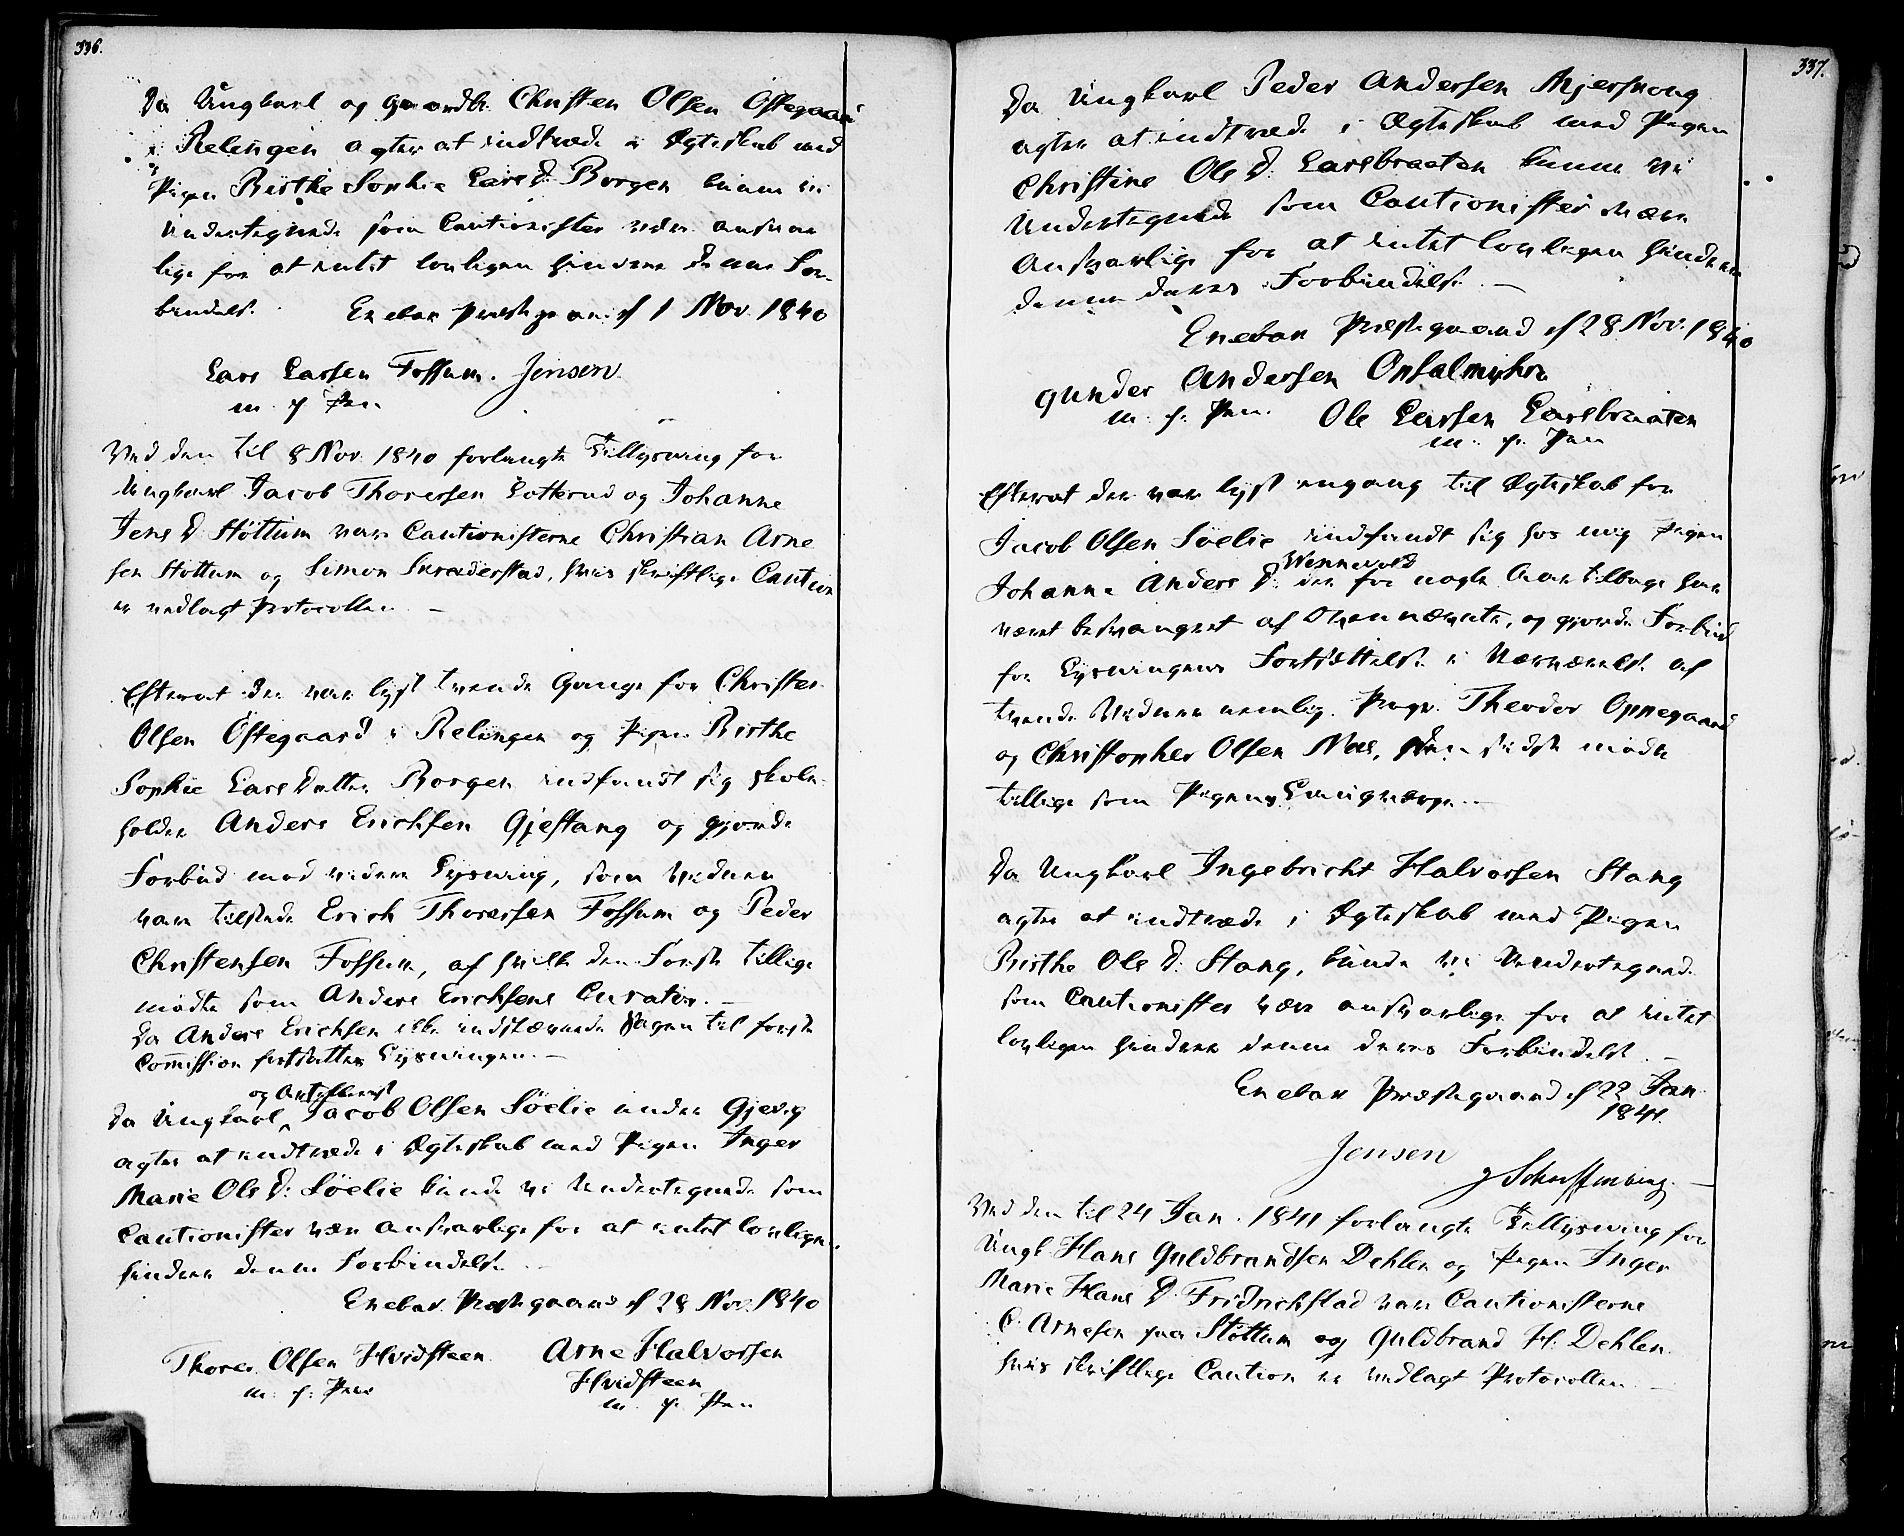 336.
Da Ungkarl og Gaardbr. Christen Olsen Östegaard
i Relingen agter at indtræde i Ægteskab med
Pigen Birthe Sophie Lars D. Borgen kunne vi
Undertegnede som Cautionister være ansvar
lige for at intet lovligen hindrer denne For-
bindelse. Enebak Præstegaard d 1 Nov. 1840
Lars Larsen Fossum. Jensen
m. f. Pen
Ved den til 8 Nov. 1840 forlangte Tillysning for
Ungkarl Jacob Thoresen Lotterud og Johanne
Jens D. Stöttum vare Cautionisterne Christian Arne
sen Stöttum og Simon Skrederstad, hvis skriftlige Caution
er vedlagt Protocollen. –
Efterat der var lyst trende Gange for Christen
Olsen Östegaard i Relingen og Pigen Birthe
Sophie Lars Datter Borgen indfandt sig Skole-
holder Anders Erichsen Gjestang og gjorde
Forbud mod videre Lysning, som Vidner
vare tilstede Erich Thoresen Fossum og Peder
Christensen Fossum, af hvilke den Første tillige
mødte som Anders Erichsens Curator. –
Da Anders Erichsen ikke indstævnede Sagen til første
Commission fortsattes Lysningen. –
og Artillerist
Da Ungkarl Jacob Olsen Söelie under Gjevig
agter at indtræde i Ægteskab med Pigen Inger
Marie Ols D: Söelie kunde vi Undertegnede som
Cautionister være ansvarlige for at intet lovligen
hindrer denne Forbindelse.
Enebak Præstegaard d 28 Nov. 1840
Thores Olsen Hvidsteen Arne Halvorsen
m. f. Pen Hvidsteen
m. f. Pen
337.
Da Ungkarl Peder Andersen
agter at indtræde i Ægteskab med Pigen
Christine Ols D: Larsbraaten kunne vi
Undertegnede som Cautionister være
Ansvarlige for at intet lovligen hindrer
denne deres Forbindelse. –
Enebak Præstegaard d 28 Nov. 1840
Gunder Andersen Opsalmyhre
m. f. Pen. Ole Larsen Larsbraaten
m. f. Pen
Efterat der var lyst engang til Ægteskab for
Jacob Olsen Söelie indfandt sig hos mig Pigen
Wennevold
Johanne Anders D: der for nogle Aar tilbage har
været besvangret af Ovennævnte, og gjorde Forbud
for Lysningens Fortsættelse i Nærværelse af
tvende Vidner nemlig Theodor Oppegaard
og Christopher Olsen Næs, den sidste mødte
tillige som Pigens Laugværge. –
Da Ungkarl Ingebricht Halvorsen Stang
agter at indtræde i Ægteskab med Pigen
Birthe Ols D: Stang, kunde vi Undertegnede
som Cautionister være ansvarlige for at intet
lovligen hindrer denne deres Forbindelse. –
Enebak Præstegaard d 22 Jan.
1841.
Jensen
Ved den til 24 Jan. 1841 forlangte Tillysning for
Ungk. Hans Guldbrandsen Dehlen og Pigen Inger
Marie Hans D. Fridrichstad vare Cautionisterne
C. Arnesen paa Stöttum og Guldbrand H. Dehlen
hvis skriftlige Caution er vedlagt Protocollen. –